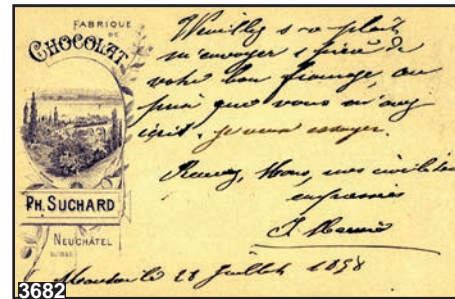 FABRIQUE
DE
CHOCOLAT
PH. SUCHARD
NEUCHÂTEL
(SUISSE)
Veuillez s v plait
m'envoyer 1 pièce de
votre bon fromage, au
prix que vous m'avez
écrit. je veux essayer.
Recevez, Mons, mes civilités
empressées
le 28 Juillet 1898
3682